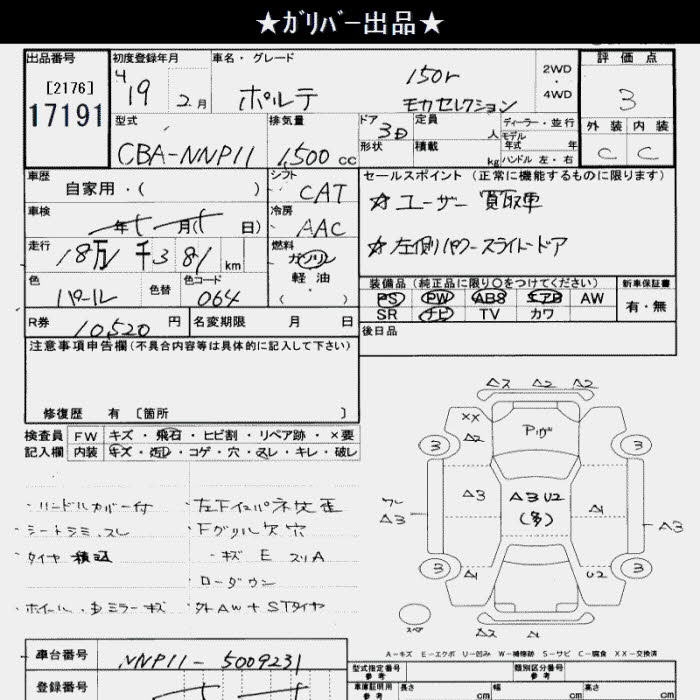 ★ｶﾞﾘﾊﾞｰ出品★
出品番号 初度登録年月 車名・グレード 評価点
[2176]
17191
4 19 2月
ポルテ
150r
モカセレクション
2WD・4WD
3
外装 内装
C C
型式 排気量 ドア 定員 ディーラー・並行
CBA-NNP11 1,500cc
3D 人
モデル年式 年
形状 積載 kg ハンドル 左・右
車歴 自家用・( )
シフト CAT
セールスポイント(正常に機能するものに限ります)
☆ユーザー買取車
☆左側パワースライドドア
車検 年 月( 日)
冷房 AAC
走行 18万 千3 81 km
燃料 ガソリン
軽油
・( )
色 パール 色替 色コード 064
装備品(純正品に限り〇をつけてください) 新車保証書
PS PW ABS エアB AW
SR ナビ TV カワ
有・無
R券 10,520円 名変期限 月 日
後日品
注意事項申告欄(不具合内容等は具体的に記入して下さい)
修復歴 有 [箇所 ]
検査員 FW キズ・飛石・ヒビ割・リペア跡・×要
記入欄 内装 キズ・凹・コゲ・穴・スレ・キレ・破レ
・ハンドルカバー付
・シートシミ、スレ
・タイヤ積込
・ホイール・ドミラーキズ
・Fグリル欠穴
・キズ E スリA
・ローダウン
・外AW+STタイヤ
Aス A2 A2
XX
A2
Pｲﾝｶﾞ
3 3
A3
A3U2
(多)
A1
ワレ
A3
A3
3 3
A1 U2
スペア
Aス A1
A－キズ E－エクボ U－凹み W－補修跡 S－サビ C－腐食 XX－交換済
車台番号 NNP11-5009231
登録番号
型式指定番号 参考
類別区分番号 参考
車庫証明用 参考 長さ cm 幅 cm 高さ cm